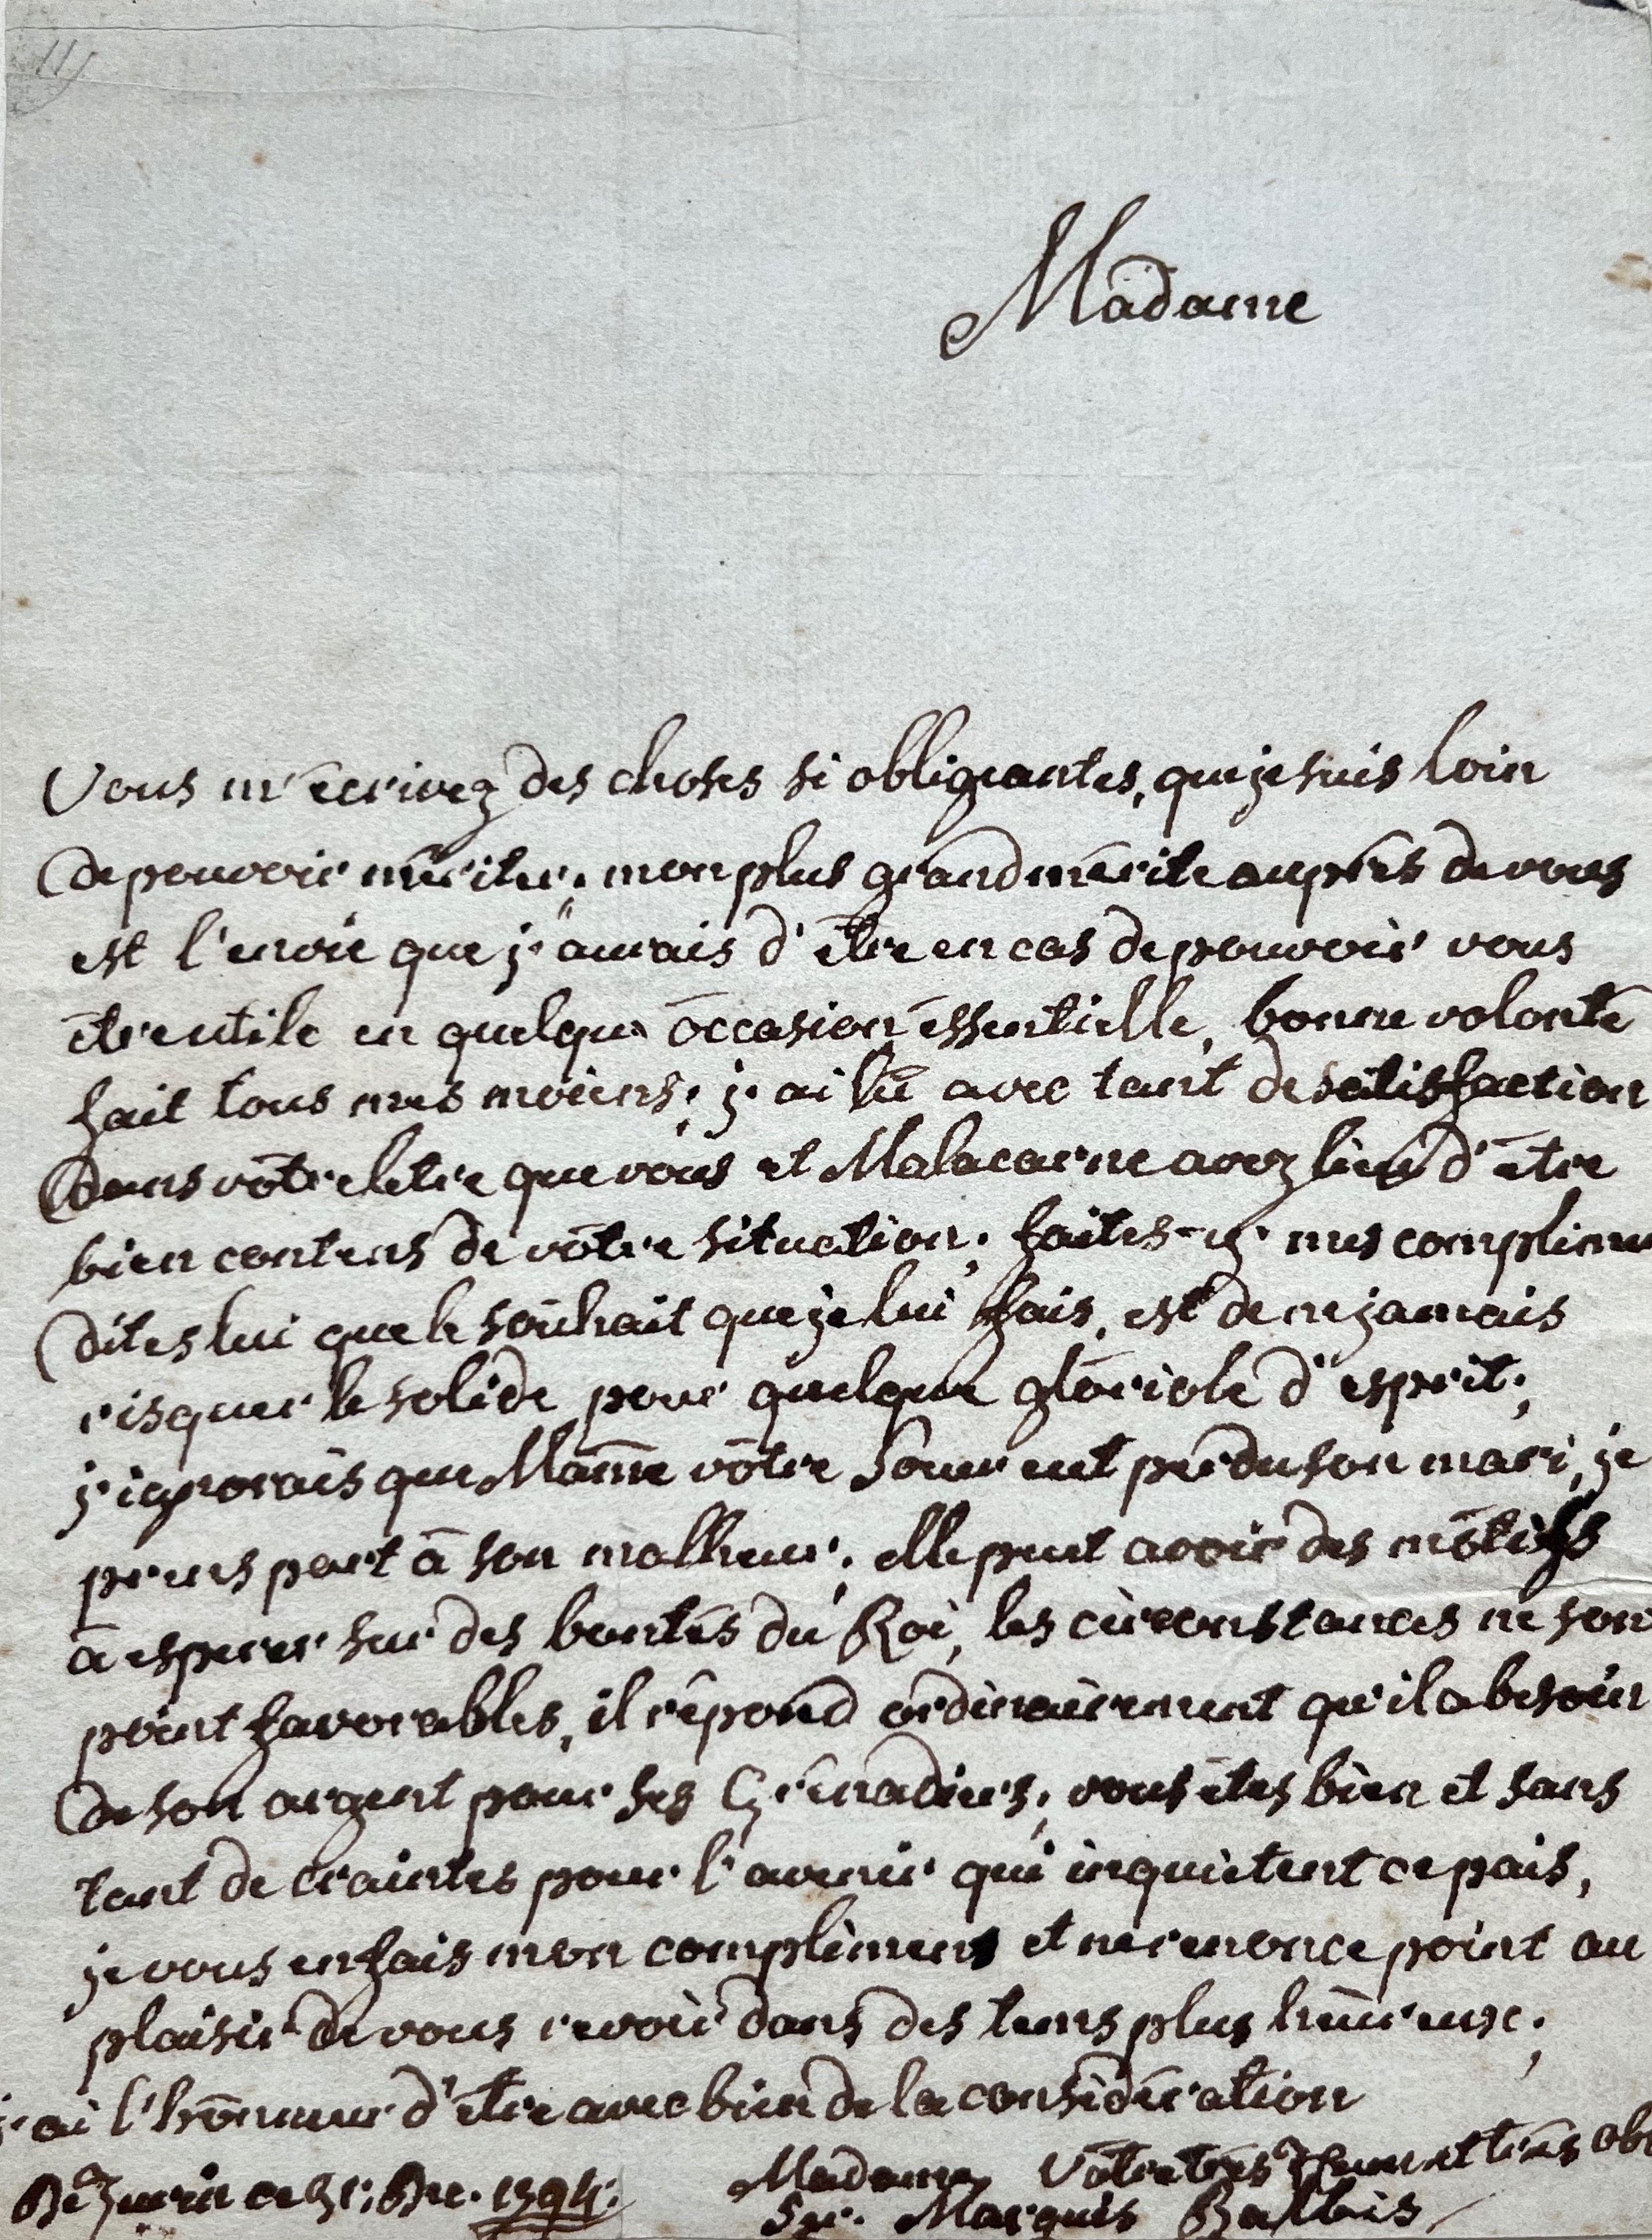 11
Madame
Vous m'ecrivez des choses si obligeantes, que je suis loin
de pouvoir mériter; mon plus grand mérite auprés de vous
est l'envie que j'aurais d'étre en cas de pouvoir vous
étre utile en quelque óccasion éssentielle, bonne volonté
fait tous mes moiens; j'ai lu avec tant de satisfaction
dans vótre letre que vous et Malacarne avez lieu d'étre
bien contens de vótre situation; faites-y mes complimen
dites lui que le souhait que je lui fais, est de ne jamais
risquer le solide pour quelque glóriole d'esprit;
j'ignorais que Mame vótre Soeur eut perdu son mari, je
prens part á son malheur; elle peut avoir des mótifs
á esperer sur des bontés du Roi, les circonstances ne son
point favorables, il répond ordinairement qu'il a besoin
de son argent pour ses Grénadiers; vous étes bien et sans
tant de craintes pour l'avenir qui inquietent ce païs,
je vous en fais mon compliment et ne renonce point au
plaisir de vous revoir dans des tems plus heureux;
j'ai l'hónneur d'étre avec bien de la considération
De Turin ce 31; Bre. 1794; Madame Vótre trés hum et trés obe
Ser. Marquis Balbis